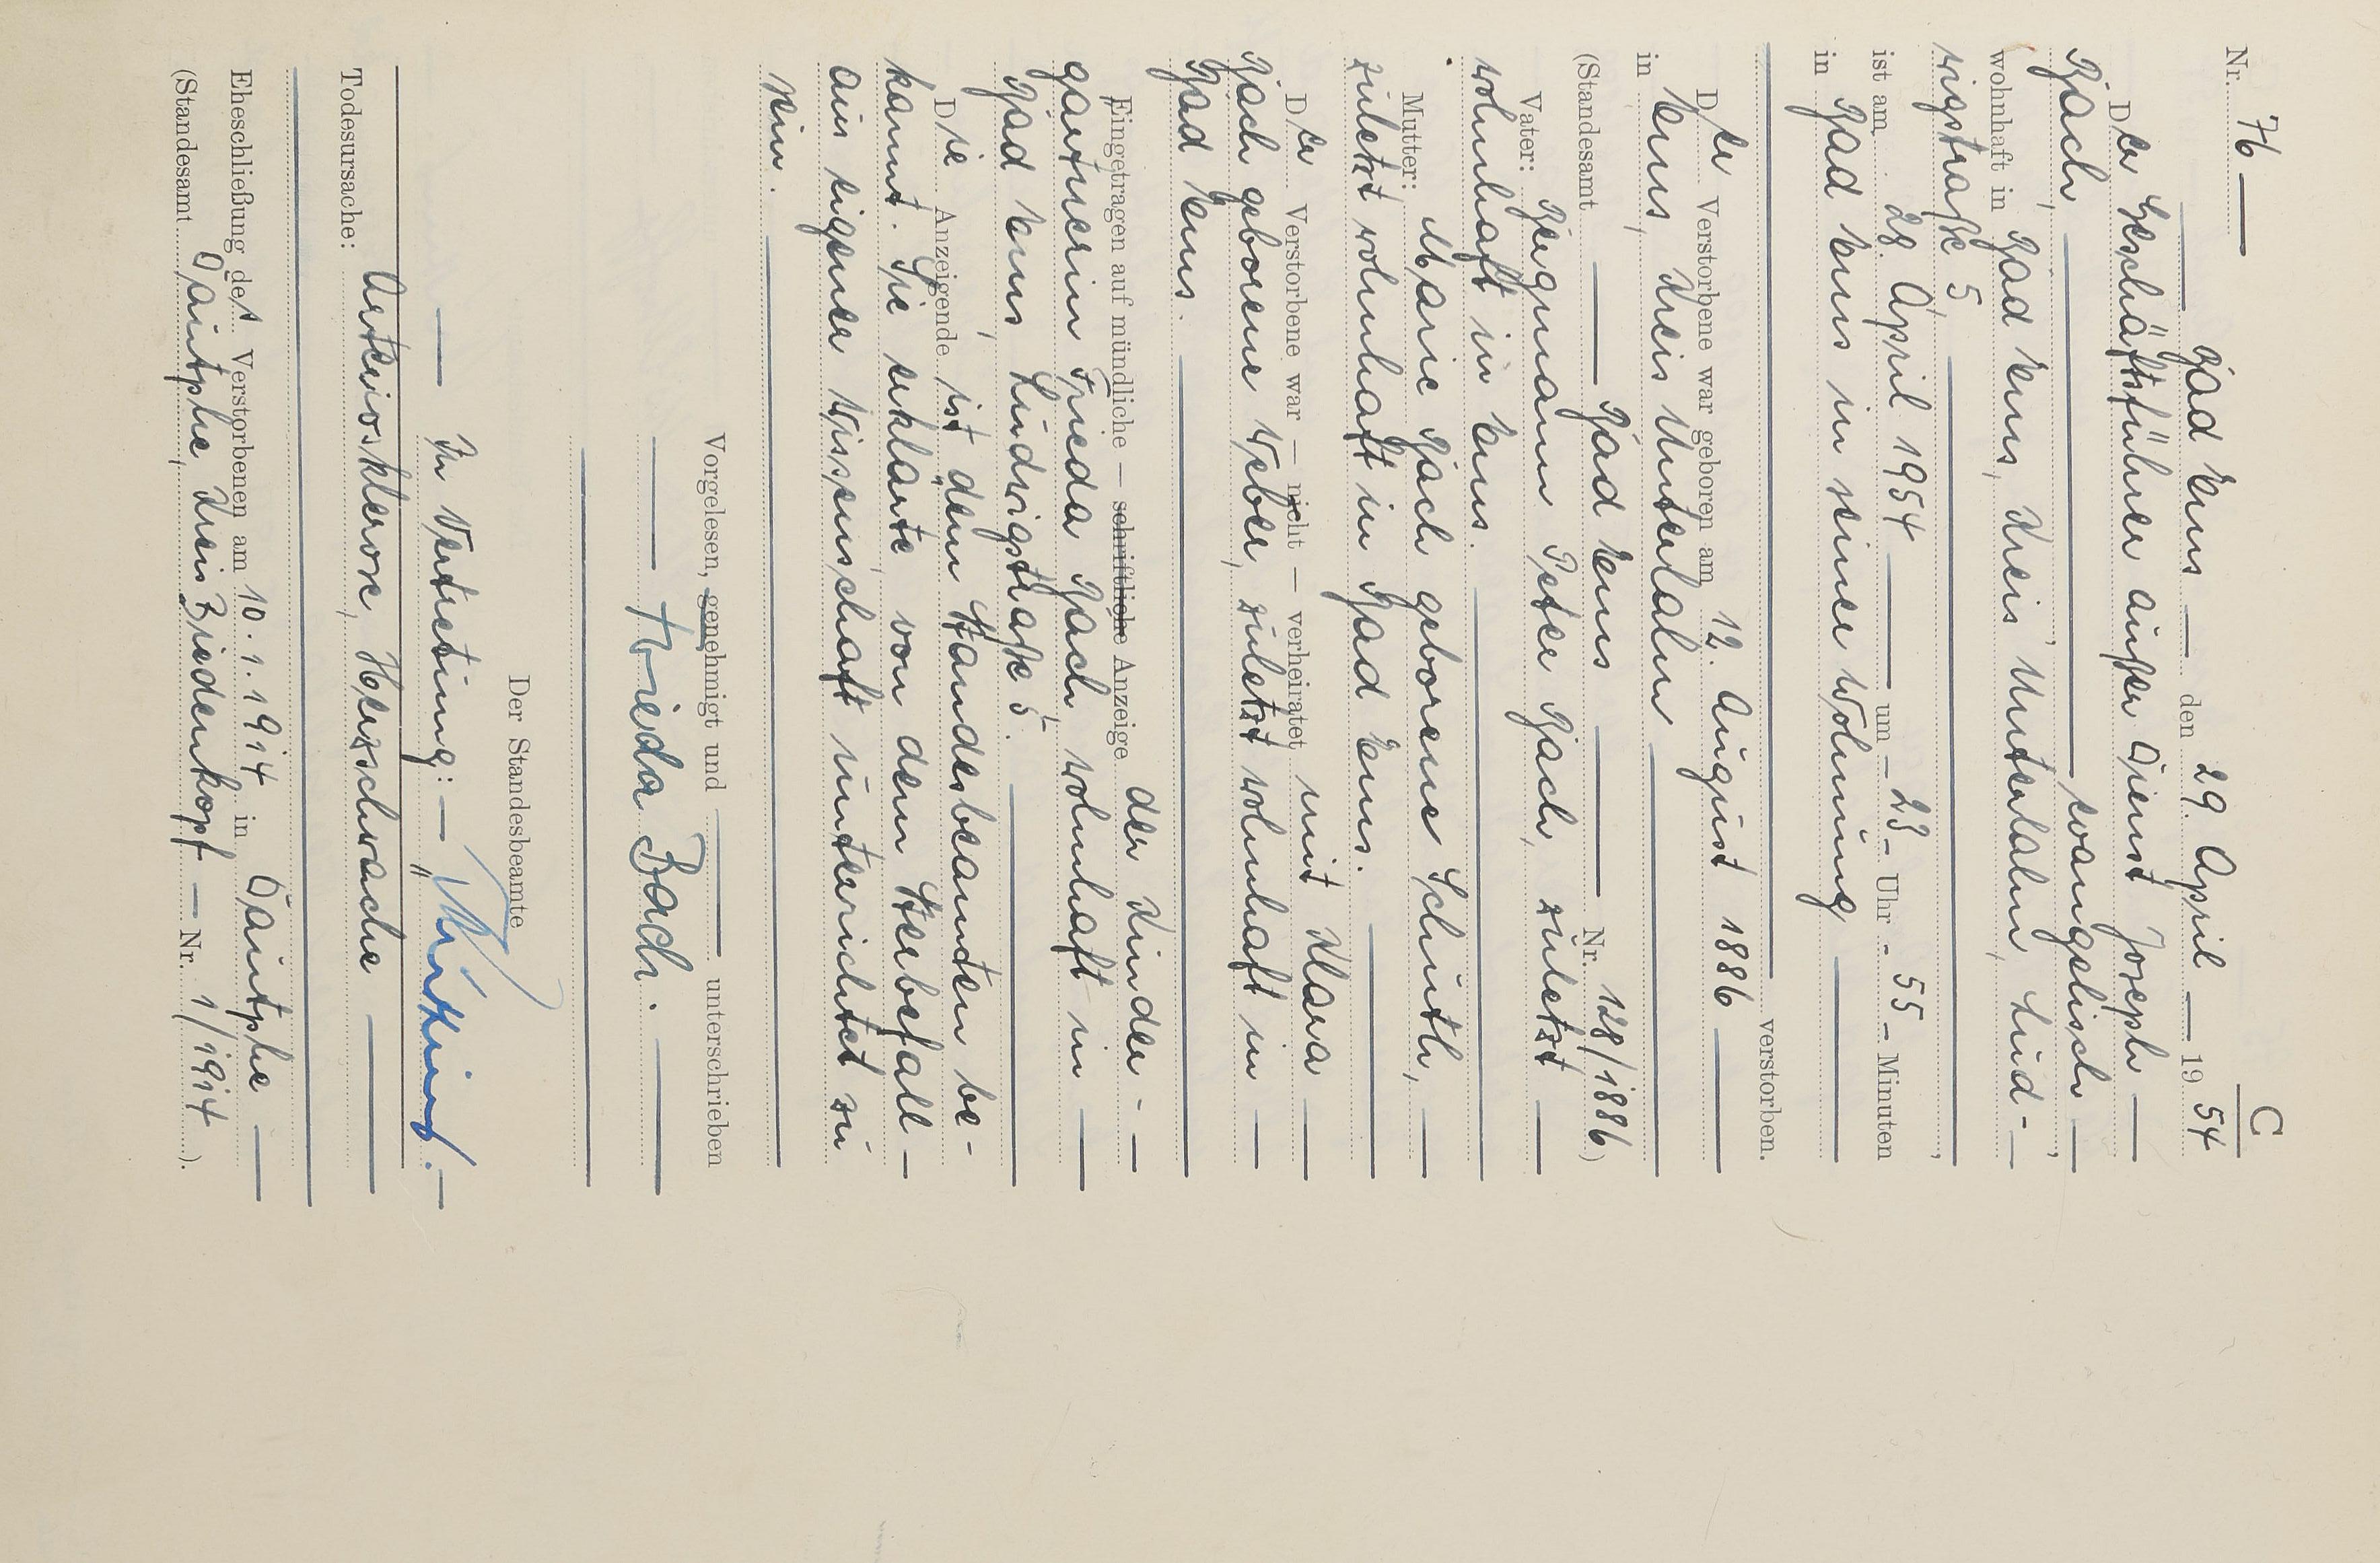 C
Nr. 76
Bad Ems — den 29. April — 19 54
Der Geschäftsführer außer Dienst Joseph —
Bach, — evangelisch —,
wohnhaft in Bad Ems, Kreis Unterlahn, Lud-
wigstraße 5 —,
ist am 28. April 1954 — um - 23 - Uhr - 55 - Minuten
in Bad Ems in seiner Wohnung —
verstorben.
Der Verstorbene war geboren am 12. August 1886 —
in Ems, Kreis Unterlahn —
(Standesamt — Bad Ems — Nr. 128/1886)
Vater: Bergmann Peter Bach, zuletzt —
wohnhaft in Ems. —
Mutter: Marie Bach geborene Schuth, —
zuletzt wohnhaft in Bad Ems. —
Der Verstorbene war — nicht — verheiratet mit Klara —
Bach geborene Weber, zuletzt wohnhaft in —
Bad Ems. —
Eingetragen auf mündliche — schriftliche Anzeige der Kinder - —
gärtnerin Frieda Bach, wohnhaft in —
Bad Ems, Ludwigstraße 5. —
Die Anzeigende ist dem Standesbeamten be-
kannt. Sie erklärte, von dem Sterbefall —
aus eigener Wissenschaft unterrichtet zu
sein. —
Vorgelesen, genehmigt und — unterschrieben
— Frieda Bach. —
Der Standesbeamte
— In Vertretung: —
Todesursache: Arteriosklerose, Herzschwäche —
Eheschließung des Verstorbenen am 10.1.1914 in Dautphe —
(Standesamt Dautphe, Kreis Biedenkopf — Nr. 1/1914).